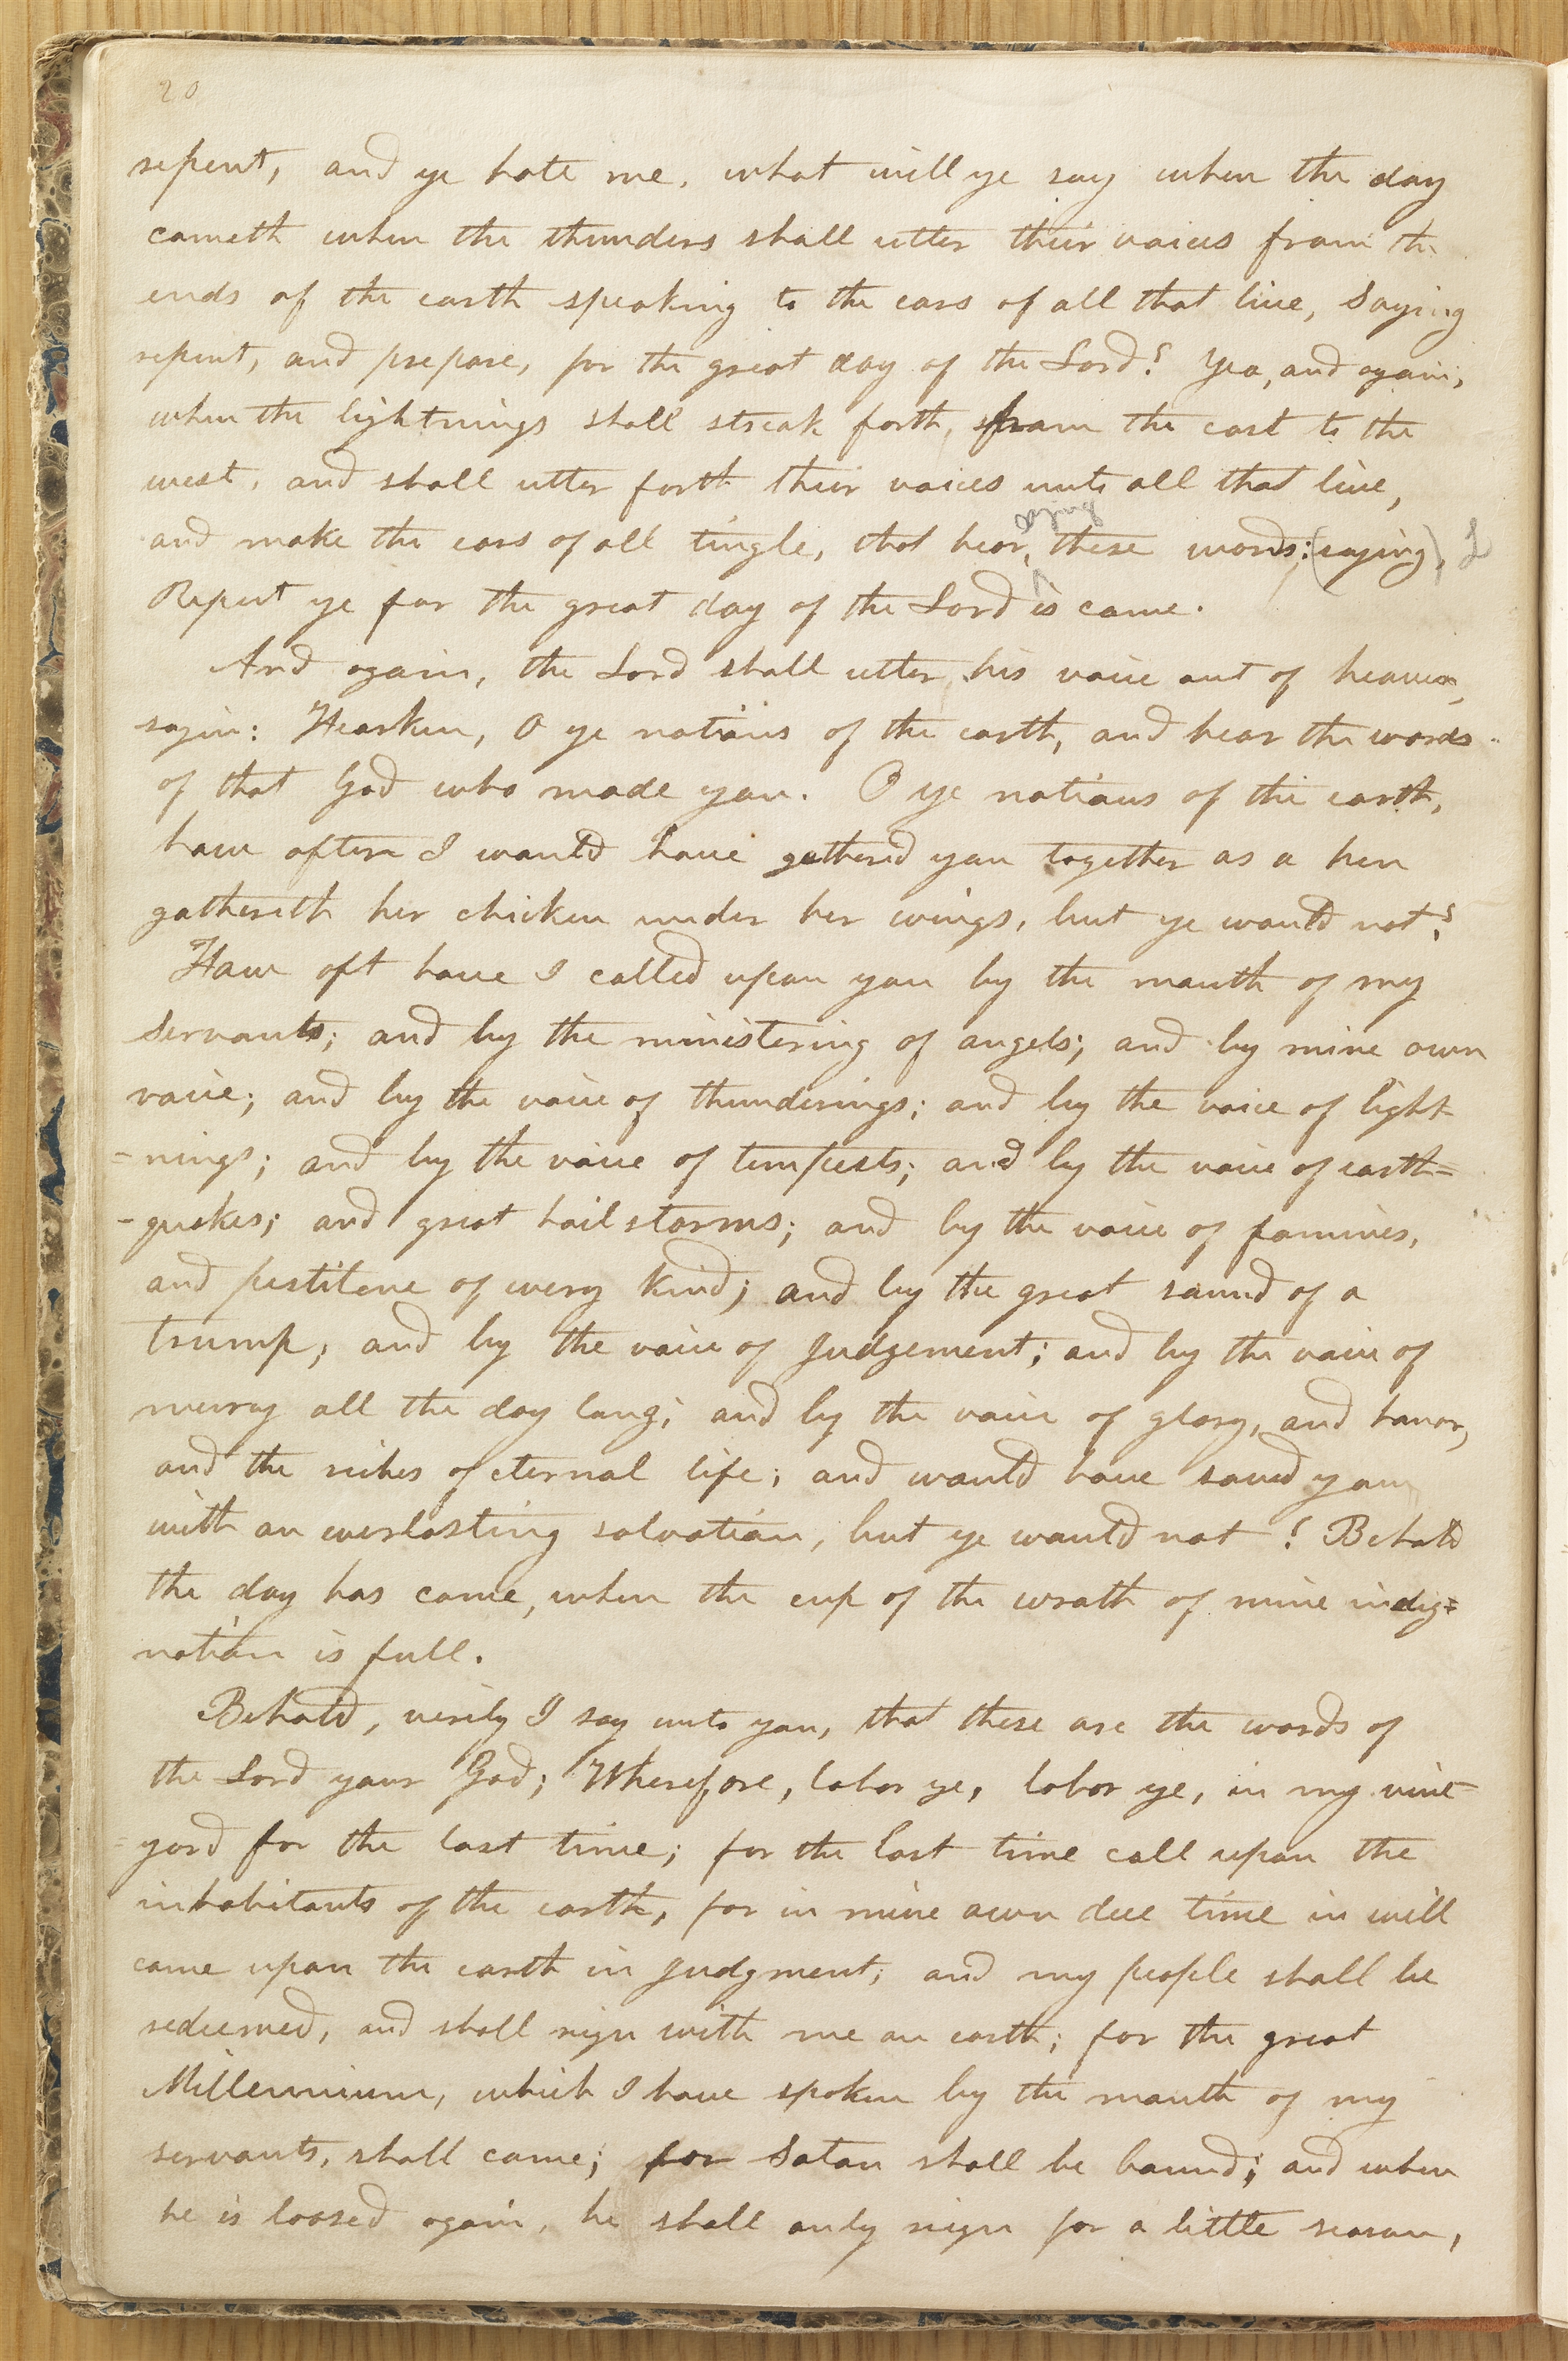 20
repent, and ye hate me, what will ye say when the day
cometh when the thunders shall utter their voices from the
ends of the earth speaking to the ears of all that live, Saying
repent, and prepare, for the great day of the Lord? Yea, and again,
when the lightnings shall streak forth, from the east to the
west, and shall utter forth their voices unto all that live,
saying
and make the ears of all tingle, that hear, these words: (saying),
Repent ye for the great day of the Lord is come.
And again, the Lord shall utter his voice out of heaven,
sayin: Hearken, O ye nations of the earth, and hear the words
of that God who made you. O ye nations of the earth,
how often I would have gathered you together as a hen
gathereth her chicken under her wings, but ye would not?
How oft have I called upon you by the mouth of my
Servants; and by the ministering of angels; and by mine own
voice; and by the voice of thunderings; and by the voice of light
=nings; and by the voice of tempests; and by the voice of earth=
-quakes; and great hailstorms; and by the voice of famines,
and pestilene of every kind; and by the great sound of a
trump; and by the voice of Judgement; and by the voice of
mercy all the day long; and by the voice of glory, and honor,
and the riches of eternal life; and would have saved you
with an everlasting salvation, but ye would not! Behold
the day has come, when the cup of the wrath of mine indig=
nation is full.
Behold, verily I say unto you, that these are the words of
the Lord your God; Wherefore, labor ye, labor ye, in my vine
=yard for the last time; for the last time call upon the
inhabitants of the earth, for in mine own due time in will
come upon the earth in Judgment; and my people shall be
redeemed, and shall reign with me on earth; for the great
Millennium, which I have spoken by the mouth of my
servants, shall come; for Satan shall be bound; and when
he is loosed again, he shall only reign for a little season,